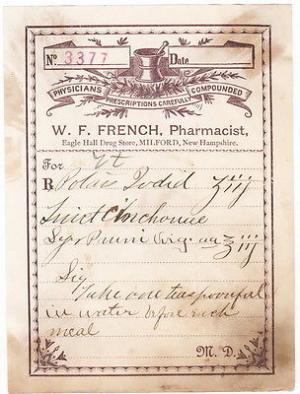 No 3377 Date
PHYSICIANS PRESCRIPTIONS CAREFULLY COMPOUNDED
W. F. FRENCH, Pharmacist,
Eagle Hall Drug Store, MILFORD, New Hampshire.
For
R Potass Iodid ʒiij
Tinct Cinchonae
Syr Pruni Virg aa ℥iij
Sig
Take one teaspoonful
in water before each
meal
M. D.